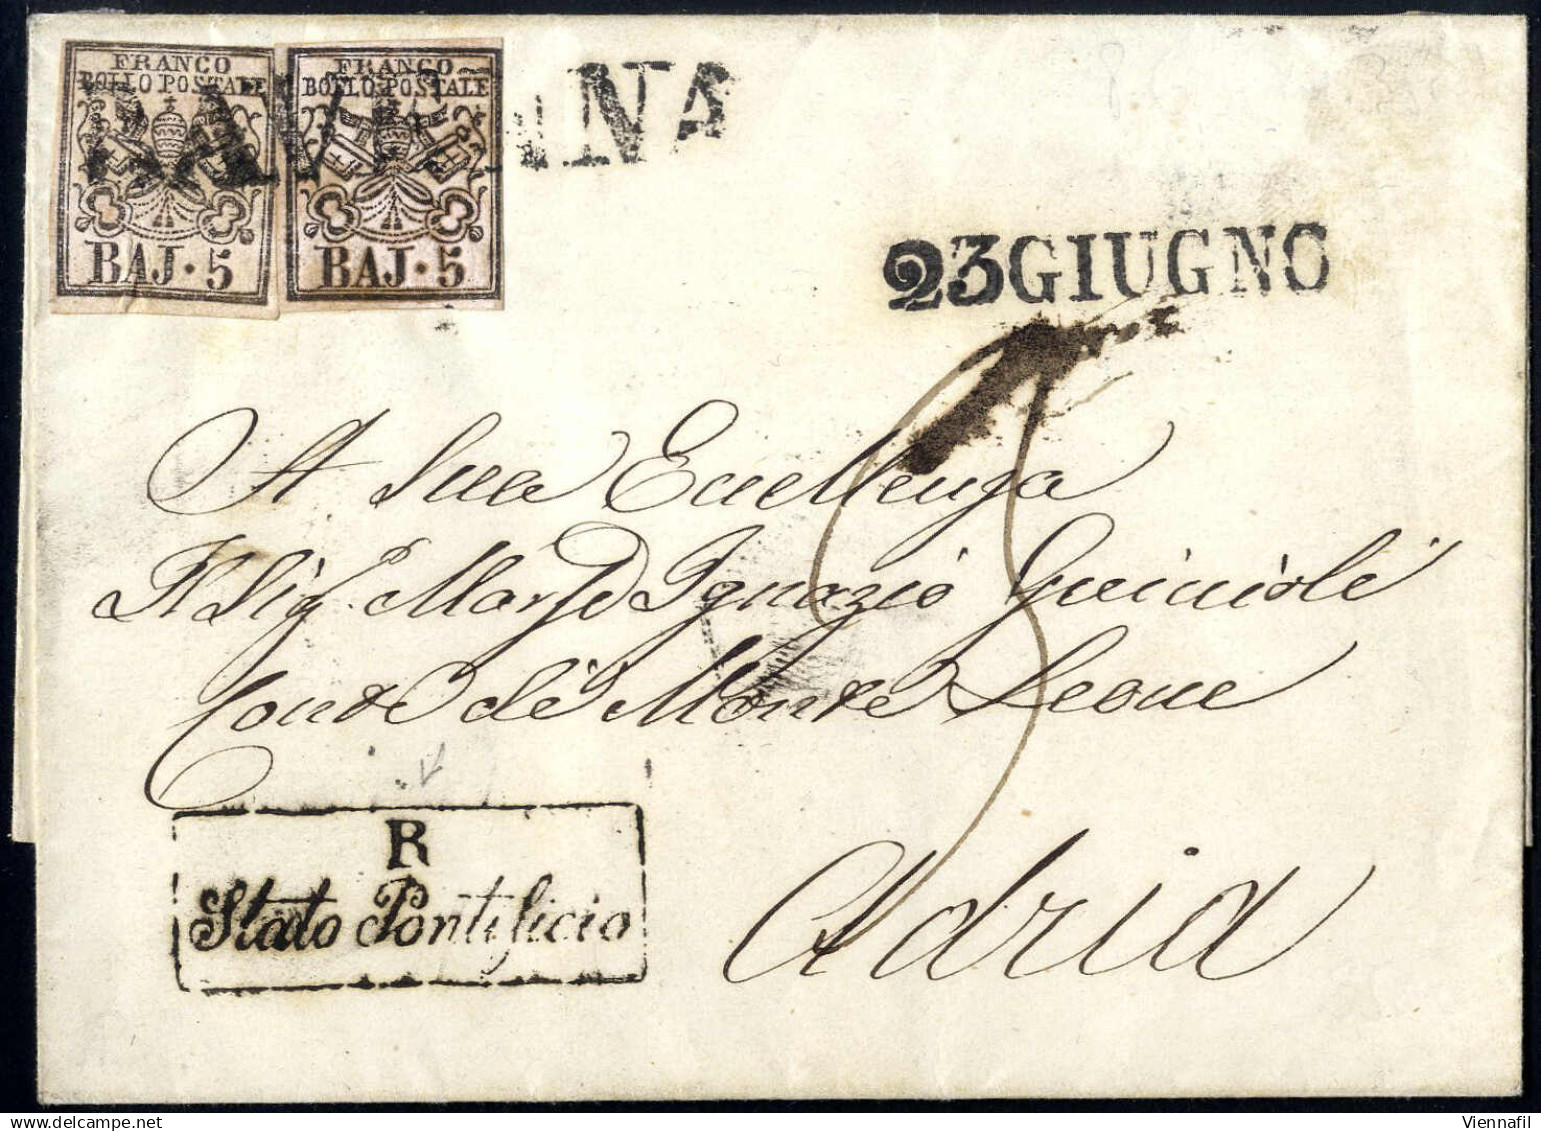 FRANCO
BOLLO POSTALE
BAJ·5
FRANCO
BOLLO POSTALE
BAJ·5
RAVENNA
23 GIUGNO
A Sua Eccellenza
Il Sig.r March.e Ignazio Guiccioli
Conte di Monte Leone
Adria
R
Stato Pontificio
Viennafil